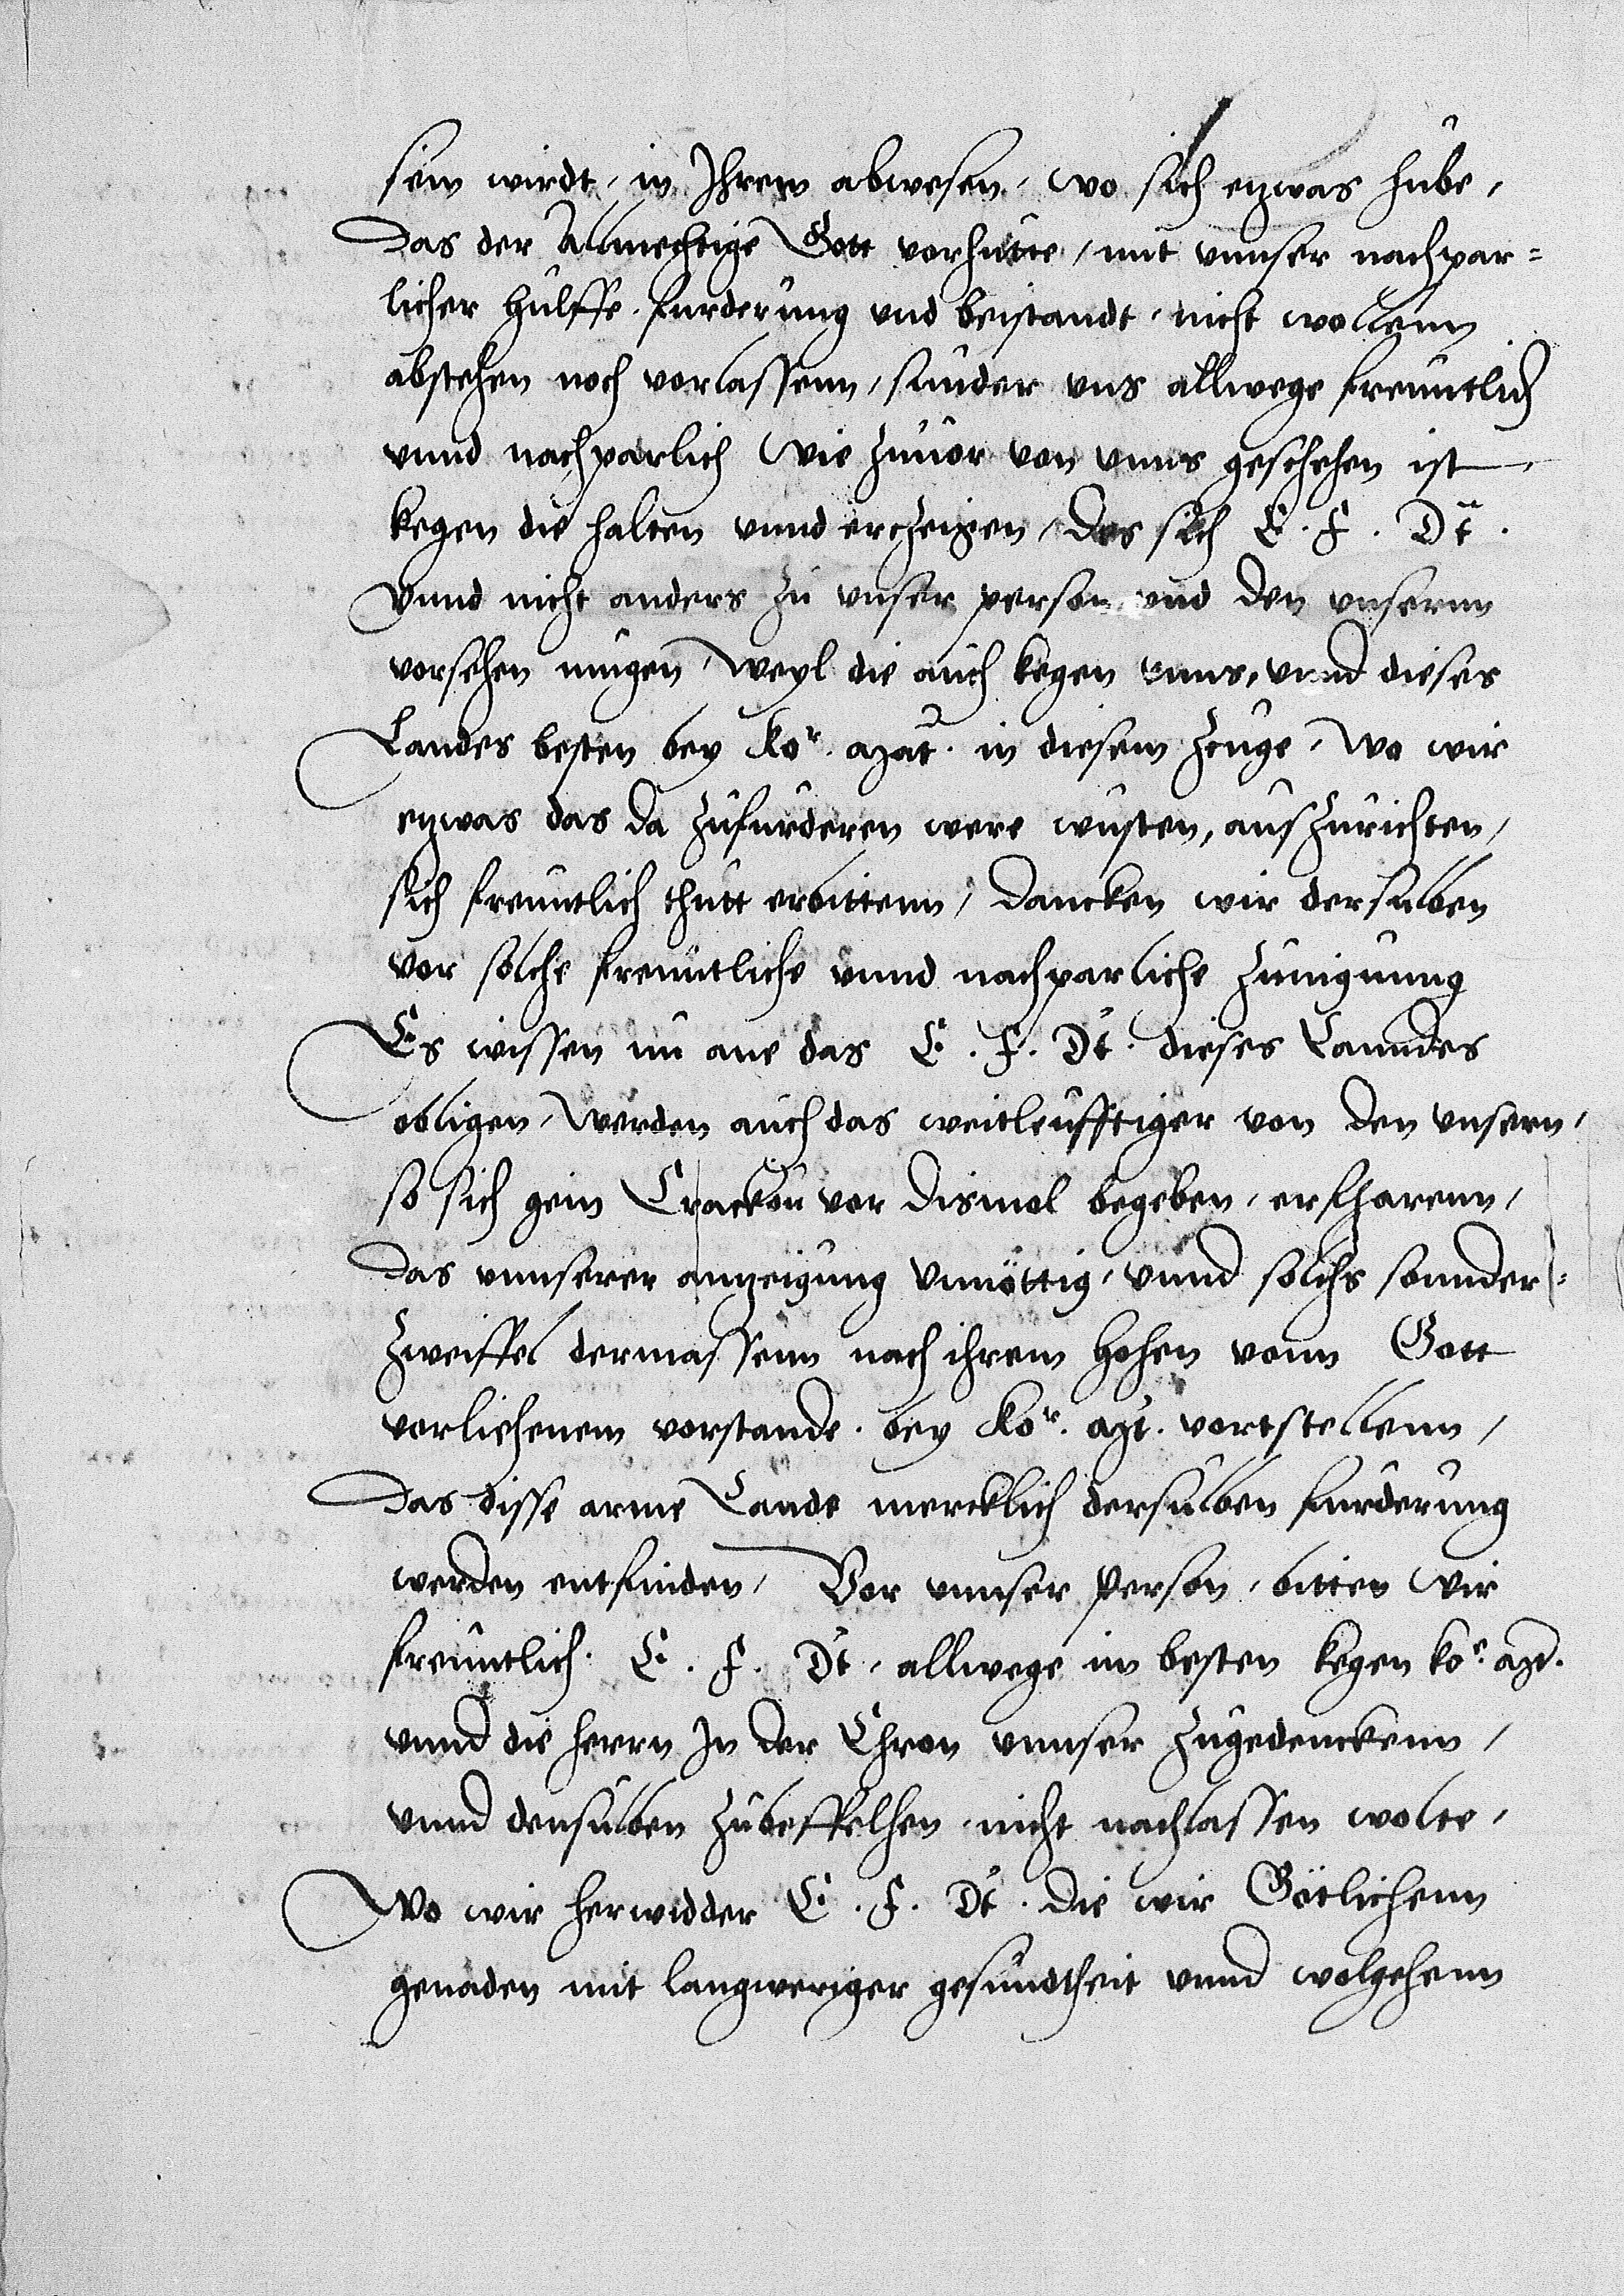 sein wirdt, in Ihrem abwesen, wo sich etzwas hube,
Das der Allmechtige Gott vorhutte, mit vnnser nachpar-
licher hulffe. furderung vnd beistandt, nicht wollenn
abstehen noch vorlassenn, sunder vns allwege freuntlich
vnnd nachparlich wie zuuor von vnns geschehen ist,
kegen die halten vnnd erczeigen, Des sich E. F. Dt.
Vnnd nicht anders zu vnser person, vnd den vnsernn
vorsehen mugen, Weyl die auch kegen vnns, vnnd dieses
Landes besten bey Kor. Mat. in diesem Zeuge, Wo wir
etzwas das da zufurderen were wusten, auszurichten,
sich freuntlich thutt erbittenn, Dancken wir derselben
vor solche freuntliche vnnd nachparliche zunigung
Es wissen nu ane das E. F. Dt. dieses Lanndes
obligen, Werden auch das weitleufftiger von den vnsern,
so sich gein Crackou vor dismol begeben, erfharenn,
Das vnnserer anzeigung vnnöttig, vnnd solchs sonnder
zweiffel dermassenn nach ihrem hohen vonn Gott
vorliehenem vorstande. bey Kor. Mt. vortstellenn,
Das disse arme Lande mercklich derselben furderung
werden entfinden, Vor vnnser Person, bitten wir
freuntlich. E. F. Dt, allwege im besten kegen Kor. Mt.
vnnd die herrn In der Chron vnnser zugedenckenn,
vnnd denselben zubeffelhen nicht nachlassen wolte,
Wo wir herwidder E. F. Dt. Die wir Götlichenn
genaden mit langweriger gesundtheit vnnd wolgehenn